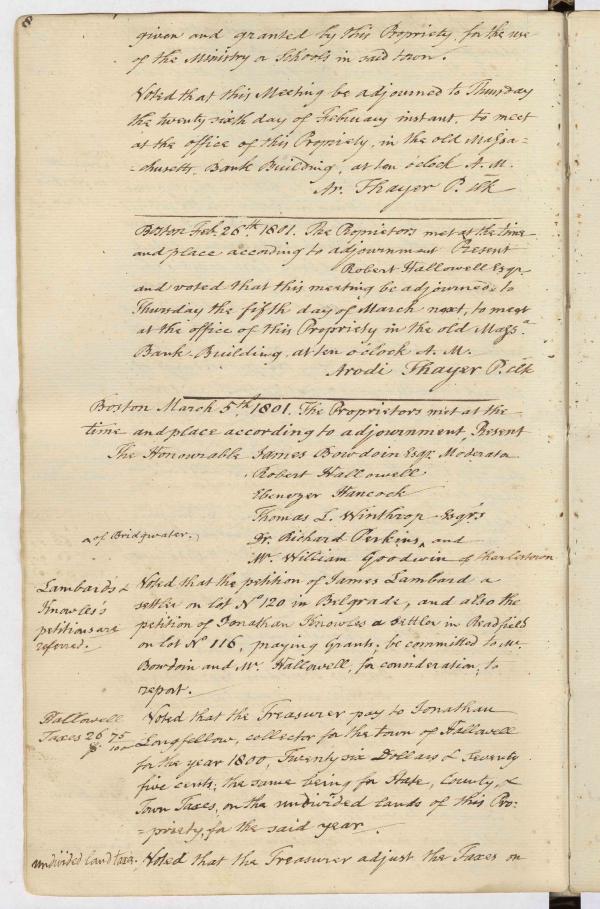 8
given and granted by this Propriety, for the use
of the Ministry or Schools in said town.
Voted that this Meeting be adjourned to Thursday
the twenty sixth day of February instant, to meet
at the office of this Propriety, in the old Massa=
=chusetts Bank Building, at ten o'clock A.M.
Ar. Thayer P. clk
Boston Feb. 26th 1801. The Proprietors met at the time
and place according to adjournment Present
Robert Hallowell Esqr.
and voted that this meeting be adjourned to
Thursday the fifth day of March next, to meet
at the office of this Propriety in the old Massa
Bank-Building, at ten o'clock A.M.
Arodi Thayer P. clk
Boston March 5th 1801. The Proprietors met at the
time and place according to adjournment, Present
The Honourable James Bowdoin Esqr. Moderator
Robert Hallowell
Ebenezer Hancock
Thomas L. Winthrop Esqr's
^ of Bridgwater.
Dr. Richard Perkins ^ and
Mr. William Goodwin of Charlestown
Lambard's &
Knowles's
petitions are
referred.
Voted that the petition of James Lambard a
settler on lot No 120 in Belgrade, and also the
petition of Jonathan Knowles a settler in Readfield
on lot No 116, praying Grants, be committed to Mr.
Bowdoin and Mr. Hallowell, for consideration, to
report.
Hallowell
Taxes 26 75/100
Voted that the Treasurer pay to Jonathan
Longfellow, collector for the town of Hallowell
for the year 1800, Twenty six Dollars & Seventy
five cents; the same being for State, County, &
Town Taxes, on the undivided lands of this Pro=
=priety, for the said year.
undivided land taxes.
Voted that the Treasurer adjust the Taxes on